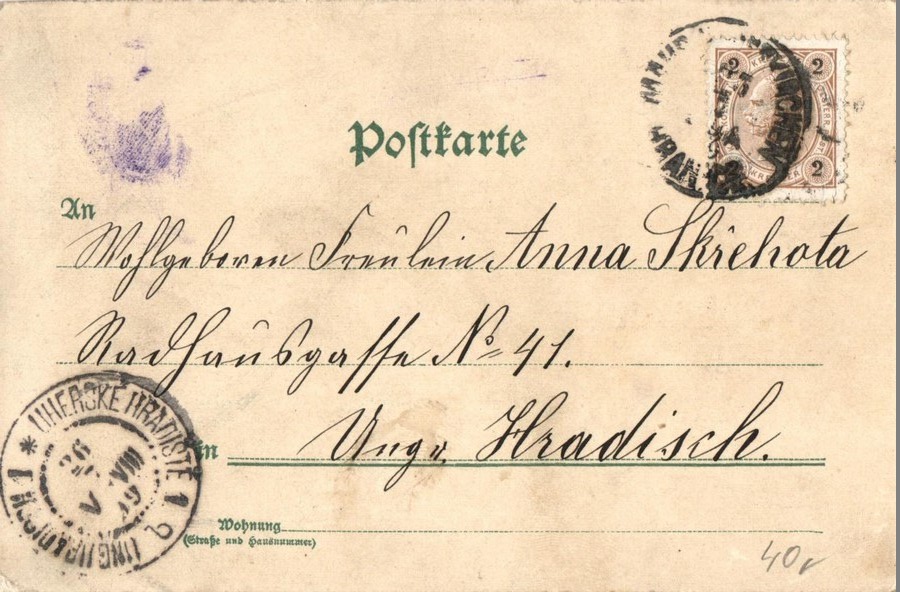 Postkarte
2 2
2 2
An
Wohlgeboren Fräulein Anna Skřehota
Radhausgasse № 41.
in Ungr. Hradisch.
UHERSKÉ HRADIŠTĚ 1
UNG. HRADISCH 1
Wohnung
(Straße und Hausnummer)
40